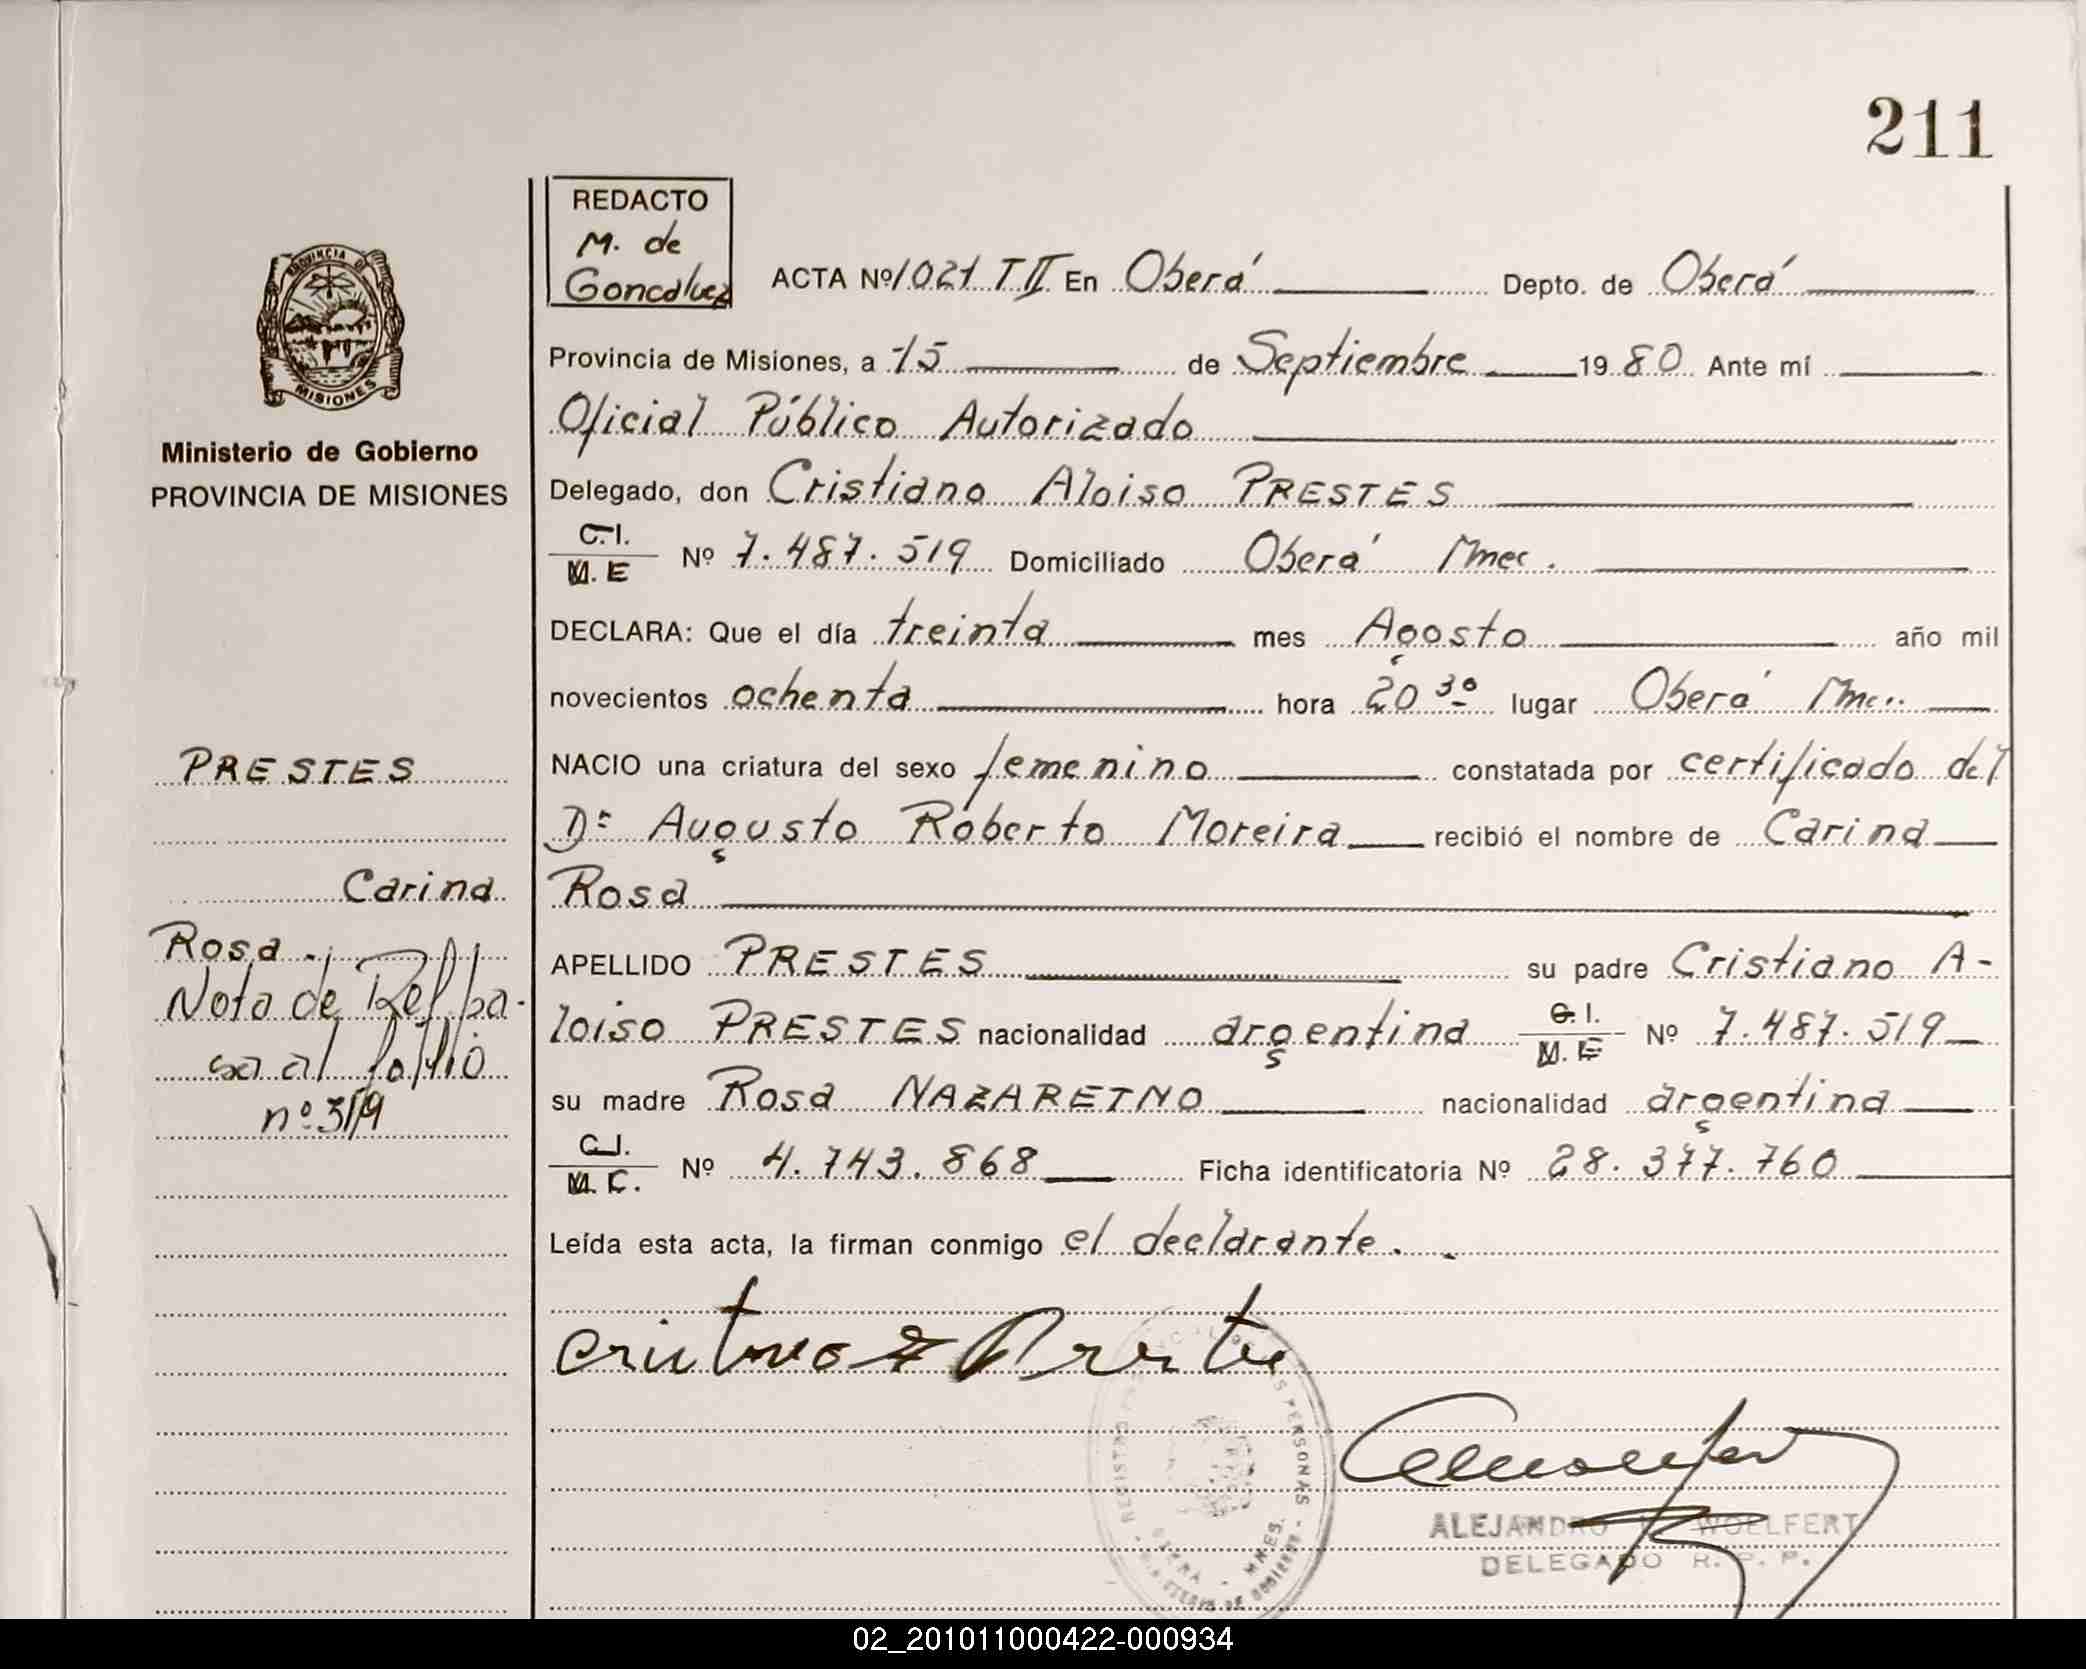 211
REDACTO
M. de
Goncalvez
ACTA Nº 1021 T II En Oberá Depto. de Oberá
Provincia de Misiones, a 15 de Septiembre 1980 Ante mí
Oficial Público Autorizado
Delegado, don Cristiano Aloiso PRESTES
C.I.
M.E Nº 7.487.519 Domiciliado Oberá Mnes.
DECLARA: Que el día treinta mes Agosto año mil
novecientos ochenta hora 20 30 lugar Oberá Mnes.
NACIO una criatura del sexo femenino constatada por certificado del
Dr Augusto Roberto Moreira recibió el nombre de Carina
Rosa
APELLIDO PRESTES su padre Cristiano A-
loiso PRESTES nacionalidad argentina C.I.
M.E Nº 7.487.519
su madre Rosa NAZARETNO nacionalidad argentina
C.I.
M.C. Nº 4.743.868 Ficha identificatoria Nº 28.377.760
Leída esta acta, la firman conmigo el declarante.
PROVINCIA DE
MISIONES
Ministerio de Gobierno
PROVINCIA DE MISIONES
PRESTES
Carina
Rosa.
Nota de Ref. pa-
sa al follio
nº 319
REGISTRO PERSONAS
MNES.
MINISTERIO DE GOBIERNO
ALEJANDRO WOELFERT
DELEGADO R. P. P.
02_201011000422-000934